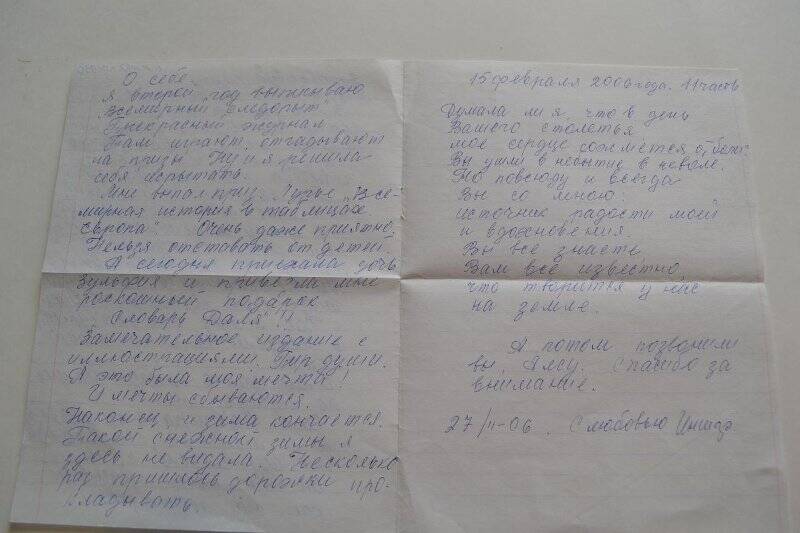 О себе.
Я второй год выписываю
"Всемирный следопыт"
Прекрасный журнал
Там играют, отгадывают
на призы. Ну и я решила
себя испытать.
Мне выпал приз. Гурье "Все-
мирная история в таблицах
Европа" Очень даже приятно,
Нельзя отставать от детей.
А сегодня приехала дочь
Зульфия и привезла мне
роскошный подарок
Словарь Даля"!!
Замечательное издание с
иллюстрациями. Пир души.
А это была моя мечта!
И мечты сбываются.
Наконец и зима кончается.
Такой снежной зимы я
здесь не видала. Несколько
раз пришлось дорожки про-
кладывать.
15 февраля 2006 года. 11 часов
Думала ли я, что в день
Вашего столетья
моё сердце сожмется от боли.
Вы ушли в небытие в неволе.
Но повсюду и всегда
Вы со мною:
источник радости моей
и вдохновения.
Вы всё знаете,
Вам всё известно,
что творится у нас
на земле.
А потом позвонили
вы, Алсу. Спасибо за
внимание.
27/II-06. С любовью